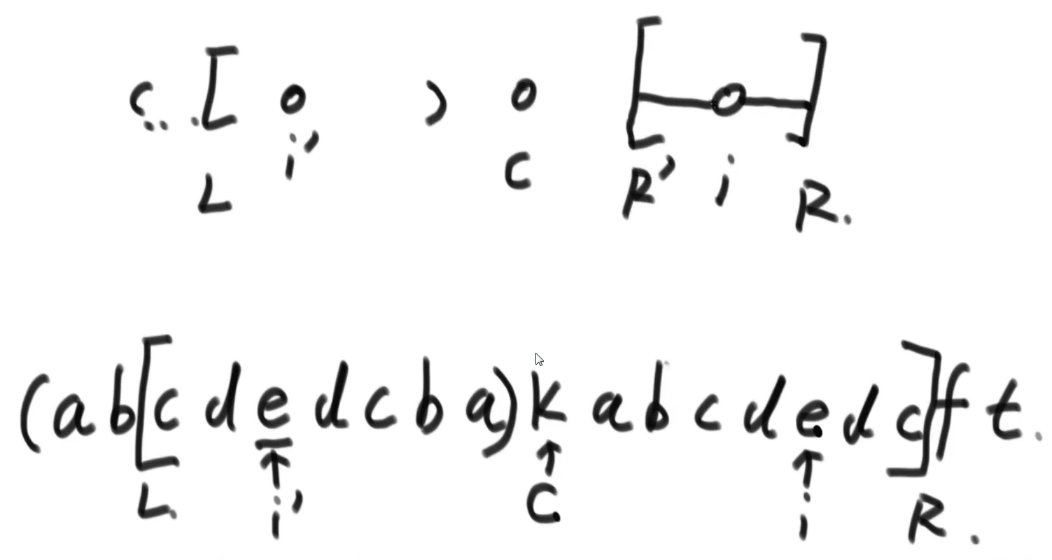 (... [ o ) o [ o ]
L i' C R' i R.
(ab[cdedcba)kabcdedc]ft.
↑ ↑ ↑
L. i' C. i R.